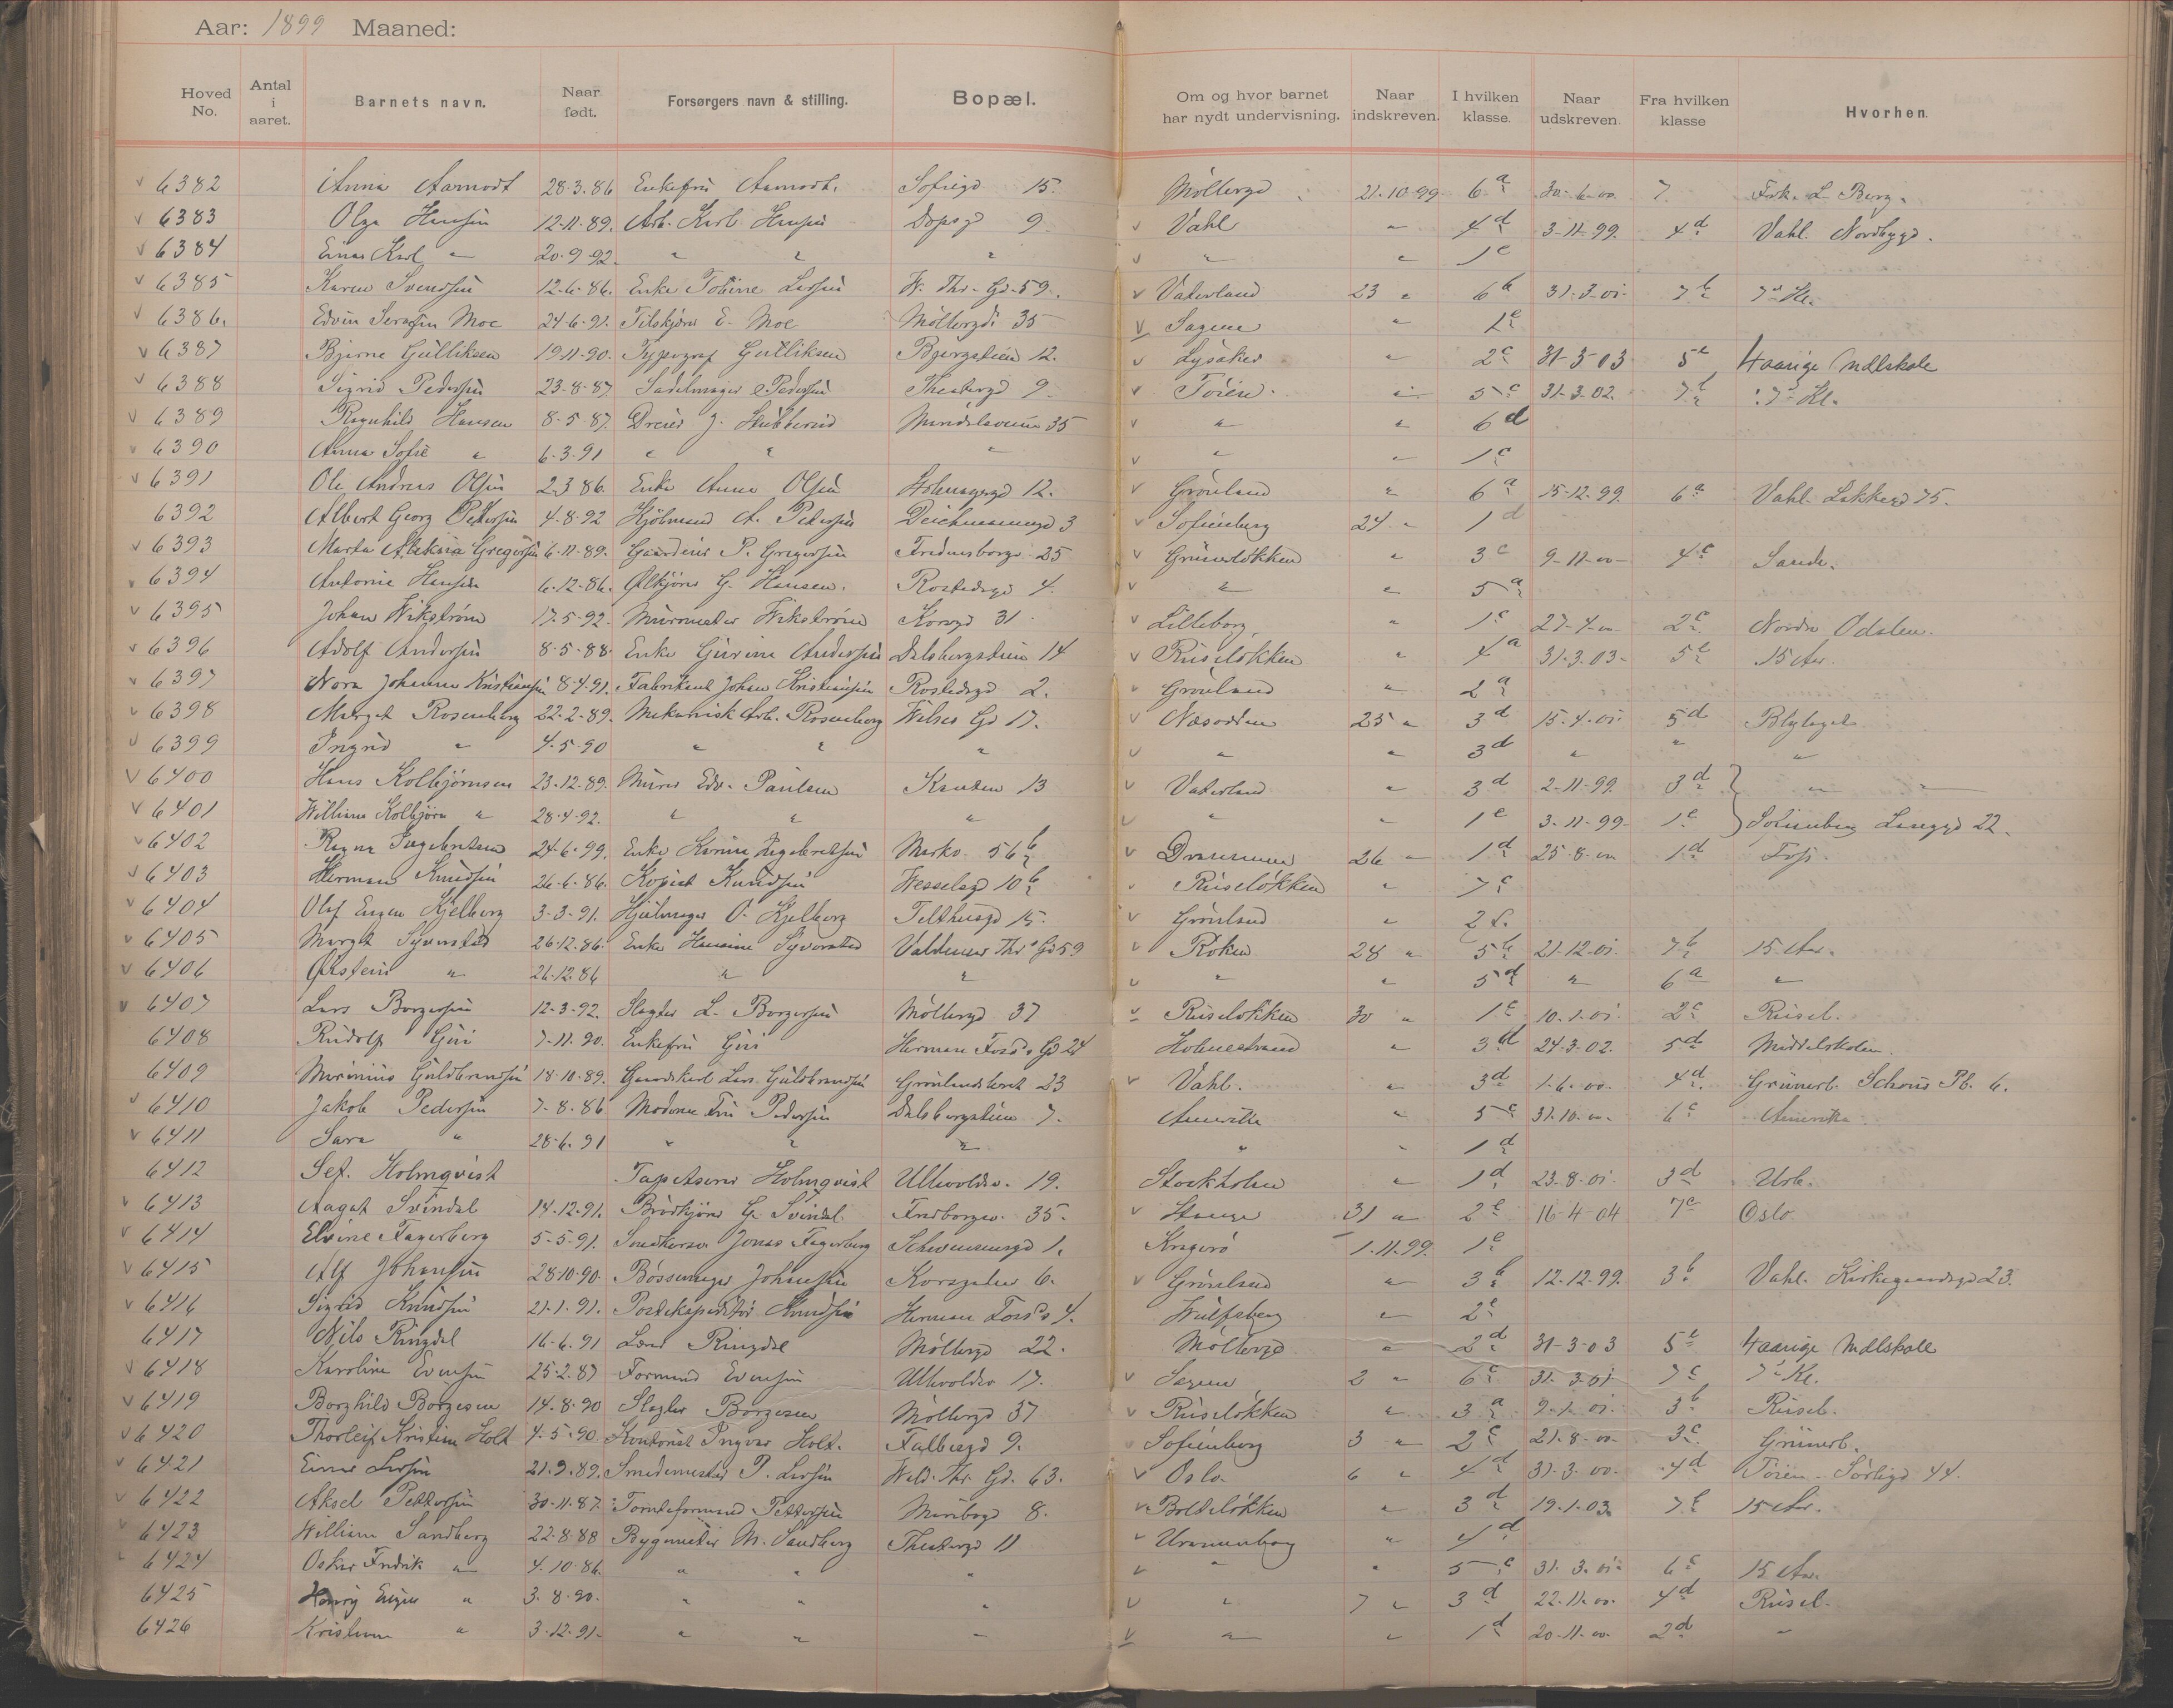 Aar: 1899 Maaned:
Hoved No. Antal i aaret. Barnets navn. Naar født. Forsørgers navn & stilling. Bopæl. Om og hvor barnet har nydt undervisning. Naar indskreven. I hvilken klasse. Naar udskreven. Fra hvilken klasse Hvorhen.
6382 Anna Aamodt 28-3-86 Enkefru Aamodt. Sofiegd 15. Møllergd 21-10-99 6a 30-6-00 7 Frk. L. Berg.
6383 Olga Hansen 12-11-89. Arb. Karl Hansen Dopsg 9. v Vahl " 4d 3-11-99. 4d Vahl. Nordbygd.
6384 Einar Karl " 20-9-92 " " " v " " 1e
6385 Karen Svendsen 12-6-86. Enke Tobine Larsen W. Thr. Gd 59. v Vaterland 23 " 6b 31-3-01 7b 7de Kl.
6386. Edvin Serafin Moe 24-6-91. Tilskjærer E. Moe Møllergd. 35 v Sagene " 2e
6387 Bjarne Gulliksen 19-11-90. Typograf Gulliksen Bjergstien 12. v Lysaker " 2c 31-3-03 5e 4aarige Mdlskole
6388 Sigrid Pedersen 23-8-87 Sadelmager Pedersen Theatergd 9. v Tøien. " 5c 31-3-02. 7b 7de Kl.
6389 Ragnhild Hansen 8-5-87. Dreier J. Hubberud 35 v " " 6d
6390 Anna Sofie " 6-3-91 " " " v " " 1c
6391 Ole Andreas Olsen 2-3-86. Enke Anna Olsen Holmensgd 12. v Grønland " 6a 15-12-99. 6a Vahl. Lakkegd 75.
6392 Albert Georg Pettersen 4-8-92 Hjólmand A. Petersen Deichmannsgd 3 v Sofienberg 24 " 1d
6393 Marta Gregersen 6-11-89. Gaardeier P. Gregersen Fredensborgv. 25 v Grünerløkken " 3c 9-11-00 4c Sande.
6394 Antonie Hansen 6-12-86. Ølkjører G. Hansen. Rostedsgd 4. v " " 5a
6395 Johan Wikstrøm 17-5-92. Murmester Wikstrøm Korsgd 31. v Lilleborg " 1c 27-4-00 2c Nordre Odalen.
6396 Adolf Andersen 8-5-88. Enke Gurine Andersen Dalsbergstien 14 v Ruseløkken " 4a 31-3-03 5e 15 Aar.
6397 Nora Johanne Kristiansen 8-4-91. Fabrikant Johan Kristiansen Rostedsgd 2. v Grønland " 2a
6398 Margit Rosenberg 22-2-89. Mekanisk Arb. Rosenberg Wilses Gd 17. v Næsodden 25 " 3d 15-4-01. 5d Blylaget
6399 Ingrid " 4-5-90 " " " v " " 3d " " "
6400 Hans Kolbjørnsen 23-12-89. Murer Edv. Paulsen Kanten 13 v Vaterland " 3d 2-11-99. 3d " "
6401 William Kolbjørn " 28-4-92. " " " v " " 1e 3-11-99 1e Sofienberg Langgd 22.
6402 Ragna Ingebretsen 24-6-99. Enke Karine Ingebretsen Markv. 56b v Drammen 26 " 1d 25-8-00 1d Foss.
6403 Herman Knudsen 26-6-86. Kopist Knudsen Wesselsgd 10b v Ruseløkken " 7c
6404 Olaf Eugen Kjelberg 3-3-91. Hjulmager O. Kjelberg Telthusgd 15. v Grønland " 2f.
6405 Margit Syverstad 26-12-86. Enke Syverstad Valdemar Thr's Gd 59 v Røken 28 " 5b 21-12-01. 7b 15 Aar.
6406 Østein " 26-12-86 " " v " " 5d " 6a "
6407 Lars Borgersen 12-3-92. Slagter L. Borgersen Møllergd 37 v Ruseløkken 30 " 1c 10-1-01. 2c Rusel.
6408 Rudolf Gini 7-11-90. Enkefru Gini Herman Foss's Gd 24 Holmestrand " 3d 24-3-02. 5d Middelskolen.
6409 Marinius Guldbrandsen 18-10-89. Gaardskarl Lars Guldbrandsen Grønlandstorvet 23 v Vahl. " 3d 1-6-00. 4d. Grünerl. Schous Pl. 6.
6410 Jakob Pedersen 7-8-86 Moderen Fru Pedersen Dalsbergstien 7. Amerika " 5c 31-10-00 6c Amerika
6411 Sara " 28-6-91 " " " " " 1d
6412 Set. Holmqvist Tapetserer Holmqvist Ullevoldsv. 19. Stockholm " 1d 23-8-01. 3d Ush.
6413 Aagot Svindal 14-12-91. Brødkjører G. Svindal. Fredborgv. 35. v Stange 31 " 2e 16-4-04 7c Oslo
6414 Elvine Fagerberg 5-5-91. Jonas Fagerberg Schwensensgd 1. Kragerø 1-11-99. 1e
6415 Alf Johansen 28-10-90. Bøssemager Johansen Korsgaden 6. v Grønland " 3b 12-12-99. 3b Vahl. Kirkegaardsgd 23.
6416 Sigrid Knudsen 21-1-91. Postekspeditør Knudsen Herman Foss's 4. Wulfsberg " 2e
6417 Nils Ringdal 16-6-91 Ringdal Møllergd 22. Møllergd " 2d 31-3-03 5e 4aarige Mdlskole
6418 Karoline Evensen 25-2-87 Formand Evensen Ullevoldsv 17. v Sagene 2 " 6c 31-3-01 7c 7de Kl.
6419 Borghild Borgesen 14-8-90 Slagter Borgesen Møllergd 37 v Ruseløkken " 3a 9-1-01. 3b Rusel.
6420 Thorleif Kristian Holt 4-5-90 Kontorist Ingvar Holt. Falbesgd 9. Sofienberg 3 " 2c 21-8-00. 3c Grünerl.
6421 Einar Larsen 21-9-89. Smedemester P. Larsen Wald. Thr. Gd. 63. v Oslo. 6 " 4d 31-3-00. 4d Tøien. Sørligd 44.
6422 Aksel Pettersen 30-11-87. Tomteformand Pettersen Maribogd 8. v Bolteløkken " 3d 19-1-03. 7b 15 Aar.
6423 William Sandberg 22-8-88 Bygmester M. Sandberg Theatergd 11 v Uranienborg " 4d
6424 Oskar Fredrik " 4-10-86. " " " v " " 5c 31-3-01. 6c 15 Aar.
6425 Henry Eugen " 3-8-90. " " " v " 7 " 3d 22-11-00. 4d Rusel.
6426 Kristian " 3-12-91. " " " v " " 1d 20-11-00. 2d "